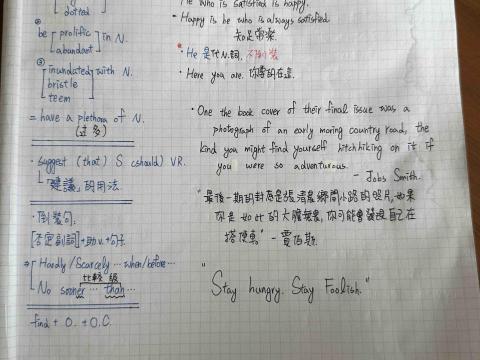 dotted
② be prolific in N.
abundant
③ inundated with N.
bristle
teem
= have a plethora of N.
(过多)
· suggest (that) S (should) VR.
「建議」的用法.
· 倒裝句:
[否定副詞]+助v.+句子
⇒ Hardly / Scarcely … when/before…
比較級
No sooner … than …
find + O. + O.C.
He who is satisfied is happy.
· Happy is he who is always satisfied.
知足常樂.
· He 是代N.詞, 不倒裝
· Here you are. 你要的在這.
· One the book cover of their final issue was a
photograph of an early moring country road, the
kind you might find yourself hitchhiking on it if
you were so adventurous.
- Jobs Smith.
"最後一期的封面是張清晨鄉間小路的照片,如果
你是如此的大膽
你可能會發現自己在
搭便車" - 賈伯斯.
"Stay hungry. Stay Foolish."